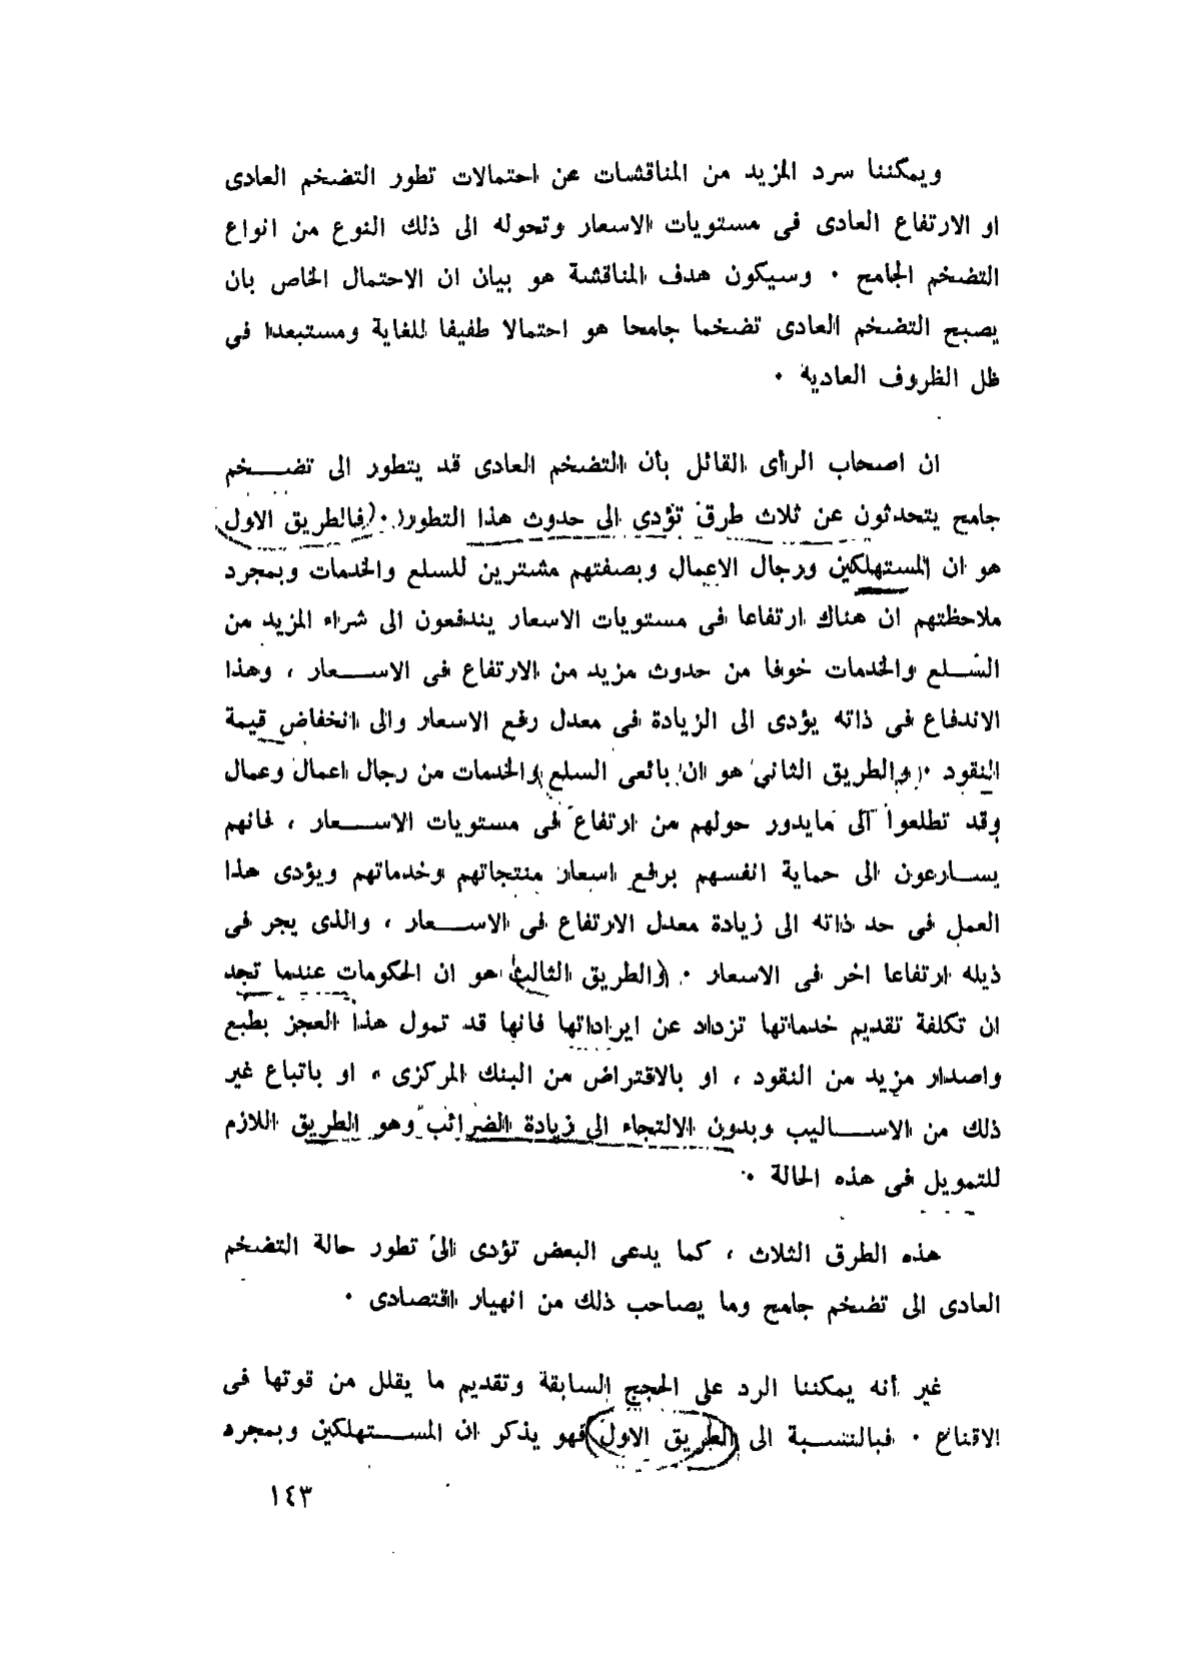 ويمكننا سرد المزيد من المناقشات عن احتمالات تطور التضخم العادى
او الارتفاع العادى فى مستويات الاسعار وتحوله الى ذلك النوع من انواع
التضخم الجامح ٠ وسيكون هدف المناقشة هو بيان ان الاحتمال الخاص بان
يصبح التضخم العادى تضخما جامحا هو احتمالا طفيفا للغاية ومستبعدا فى
ظل الظروف العادية ٠
ان اصحاب الرأى القائل بأن التضخم العادى قد يتطور الى تضخم
جامح يتحدثون عن ثلاث طرق تؤدى الى حدوث هذا التطور ٠ فالطريق الاول
هو ان المستهلكين ورجال الاعمال وبصفتهم مشترين للسلع والخدمات وبمجرد
ملاحظتهم ان هناك ارتفاعا فى مستويات الاسعار يندفعون الى شراء المزيد من
السلع والخدمات خوفا من حدوث مزيد من الارتفاع فى الاسعار ، وهذا
الاندفاع فى ذاته يؤدى الى الزيادة فى معدل رفع الاسعار والى انخفاض قيمة
النقود ٠ والطريق الثانى هو ان بائعى السلع والخدمات من رجال اعمال وعمال
وقد تطلعوا الى مايدور حولهم من ارتفاع فى مستويات الاسعار ، فانهم
يسارعون الى حماية انفسهم برفع اسعار منتجاتهم وخدماتهم ويؤدى هذا
العمل فى حد ذاته الى زيادة معدل الارتفاع فى الاسعار ، والذى يجر فى
ذيله ارتفاعا اخر فى الاسعار ٠ والطريق الثالث هو ان الحكومات عندما تجد
ان تكلفة تقديم خدماتها تزداد عن ايراداتها فانها قد تمول هذا العجز بطبع
واصدار مزيد من النقود ، او بالاقتراض من البنك المركزى ، او باتباع غير
ذلك من الاساليب وبدون الالتجاء الى زيادة الضرائب وهو الطريق اللازم
للتمويل فى هذه الحالة ٠
هذه الطرق الثلاث ، كما يدعى البعض تؤدى الى تطور حالة التضخم
العادى الى تضخم جامح وما يصاحب ذلك من انهيار اقتصادى ٠
غير أنه يمكننا الرد على الحجج السابقة وتقديم ما يقلل من قوتها فى
الاقناع ٠ فبالنسبة الى الطريق الاول فهو يذكر ان المستهلكين وبمجرد
١٤٣